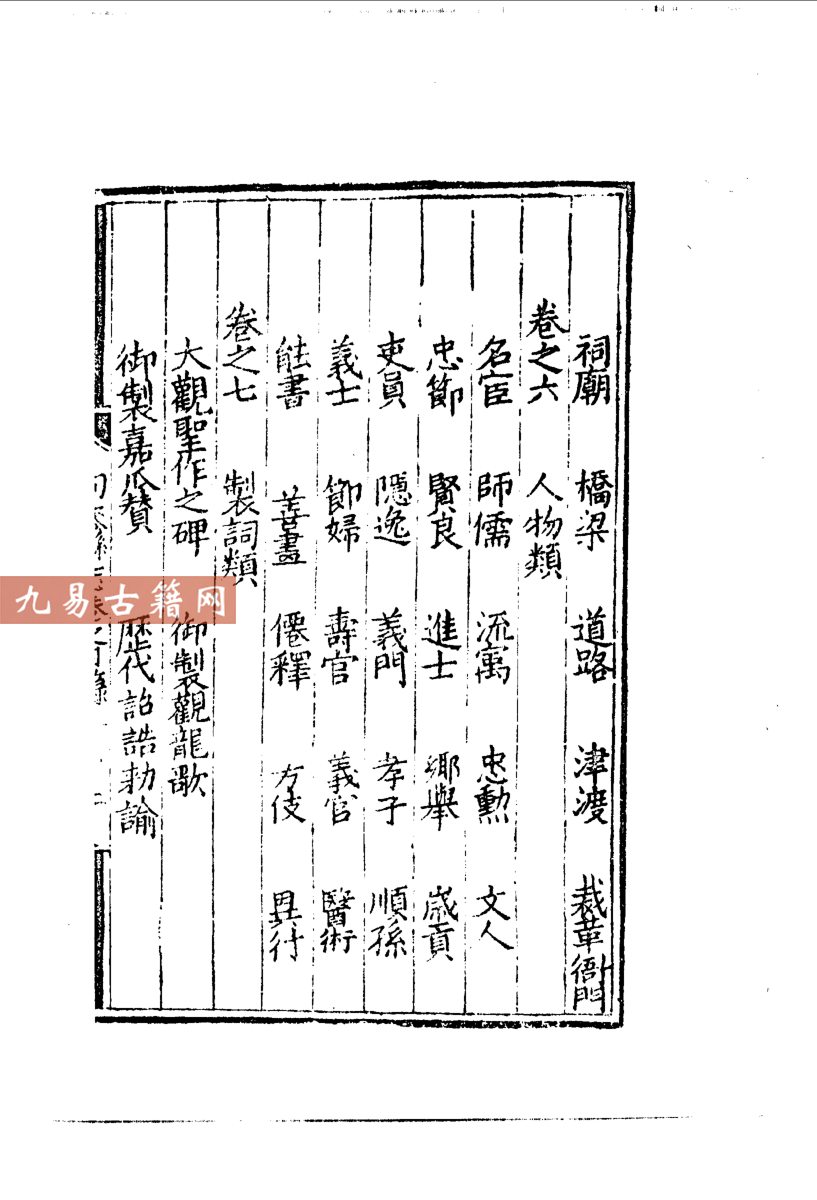 祠廟 橋梁 道路 津渡 裁革衙門
卷之六 人物類
名宦 師儒 流寓 忠勲 文人
忠節 賢良 進士 鄉舉 歲貢
吏員 隱逸 義門 孝子 順孫
義士 節婦 壽官 義官 醫術
能書 善畫 僊釋 方伎 異行
卷之七 製詞類
大觀聖作之碑 御製觀龍歌
御製嘉瓜贊 歷代詔誥勅諭
九易古籍网